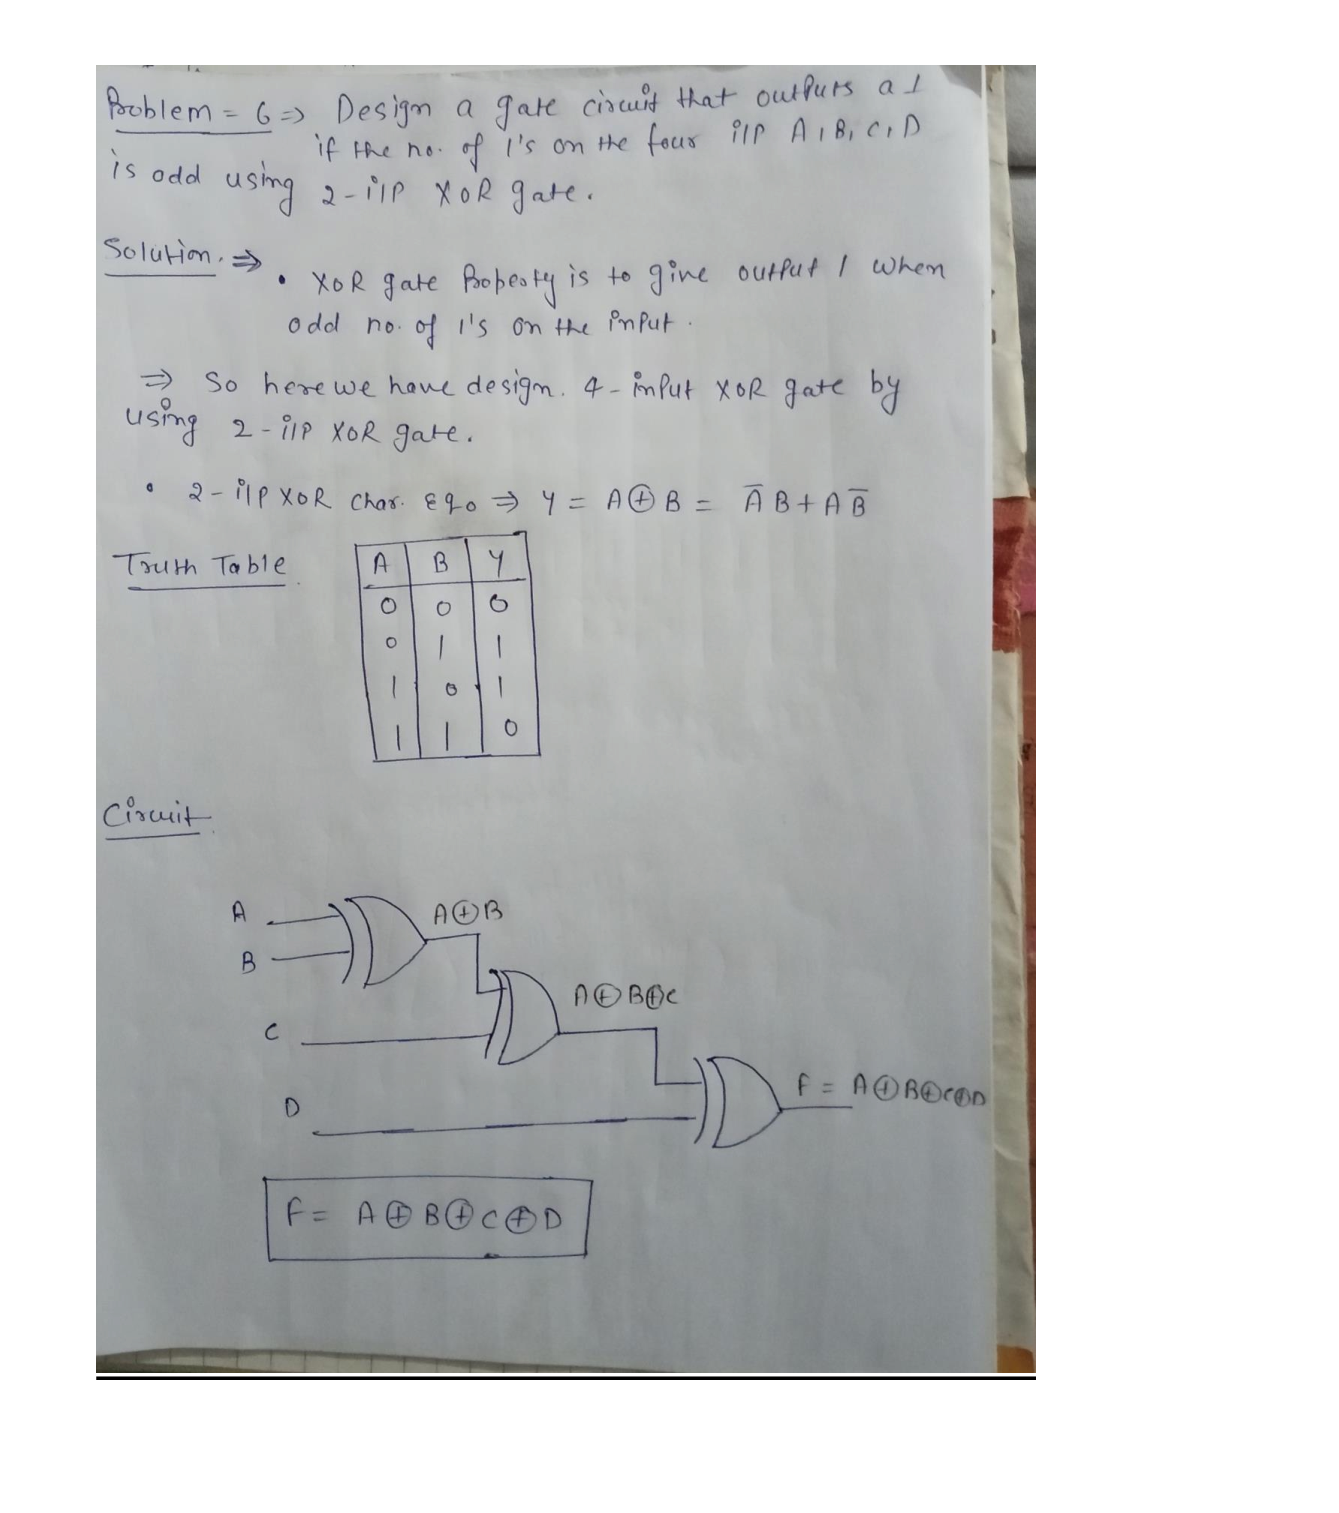 Problem = 6 ⇒ Design a gate circuit that outputs a 1
if the no. of 1's on the four i/p A, B, C, D
is odd using 2-i/p XOR gate.
Solution. ⇒
• XOR gate Property is to give output 1 when
odd no. of 1's on the input.
⇒ So here we have design. 4-input XOR gate by
using 2-i/p XOR gate.
• 2-i/p XOR Char. Eqn ⇒ Y = A⊕B = A̅B + AB̅
Truth Table
A B Y
0 0 0
0 1 1
1 0 1
1 1 0
Circuit
A
B
A⊕B
C
A⊕B⊕C
D
F = A⊕B⊕C⊕D
F = A⊕B⊕C⊕D